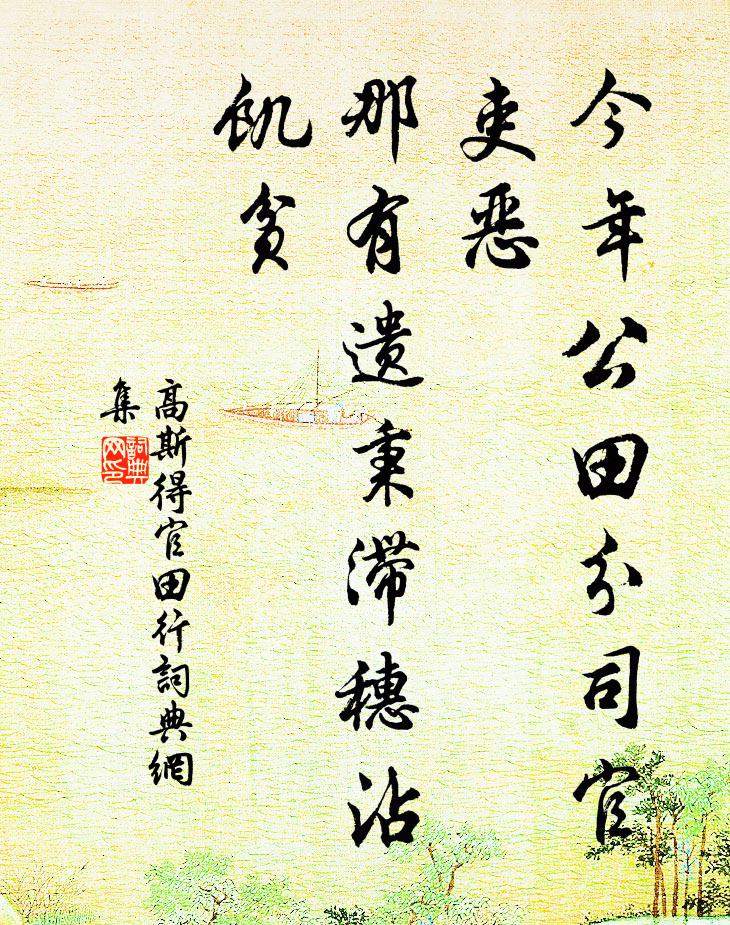 今年公田分司官
吏恶
那有遗秉滞穗沾
飢贫
高斯得官田行詞典網
集
詞典
网印